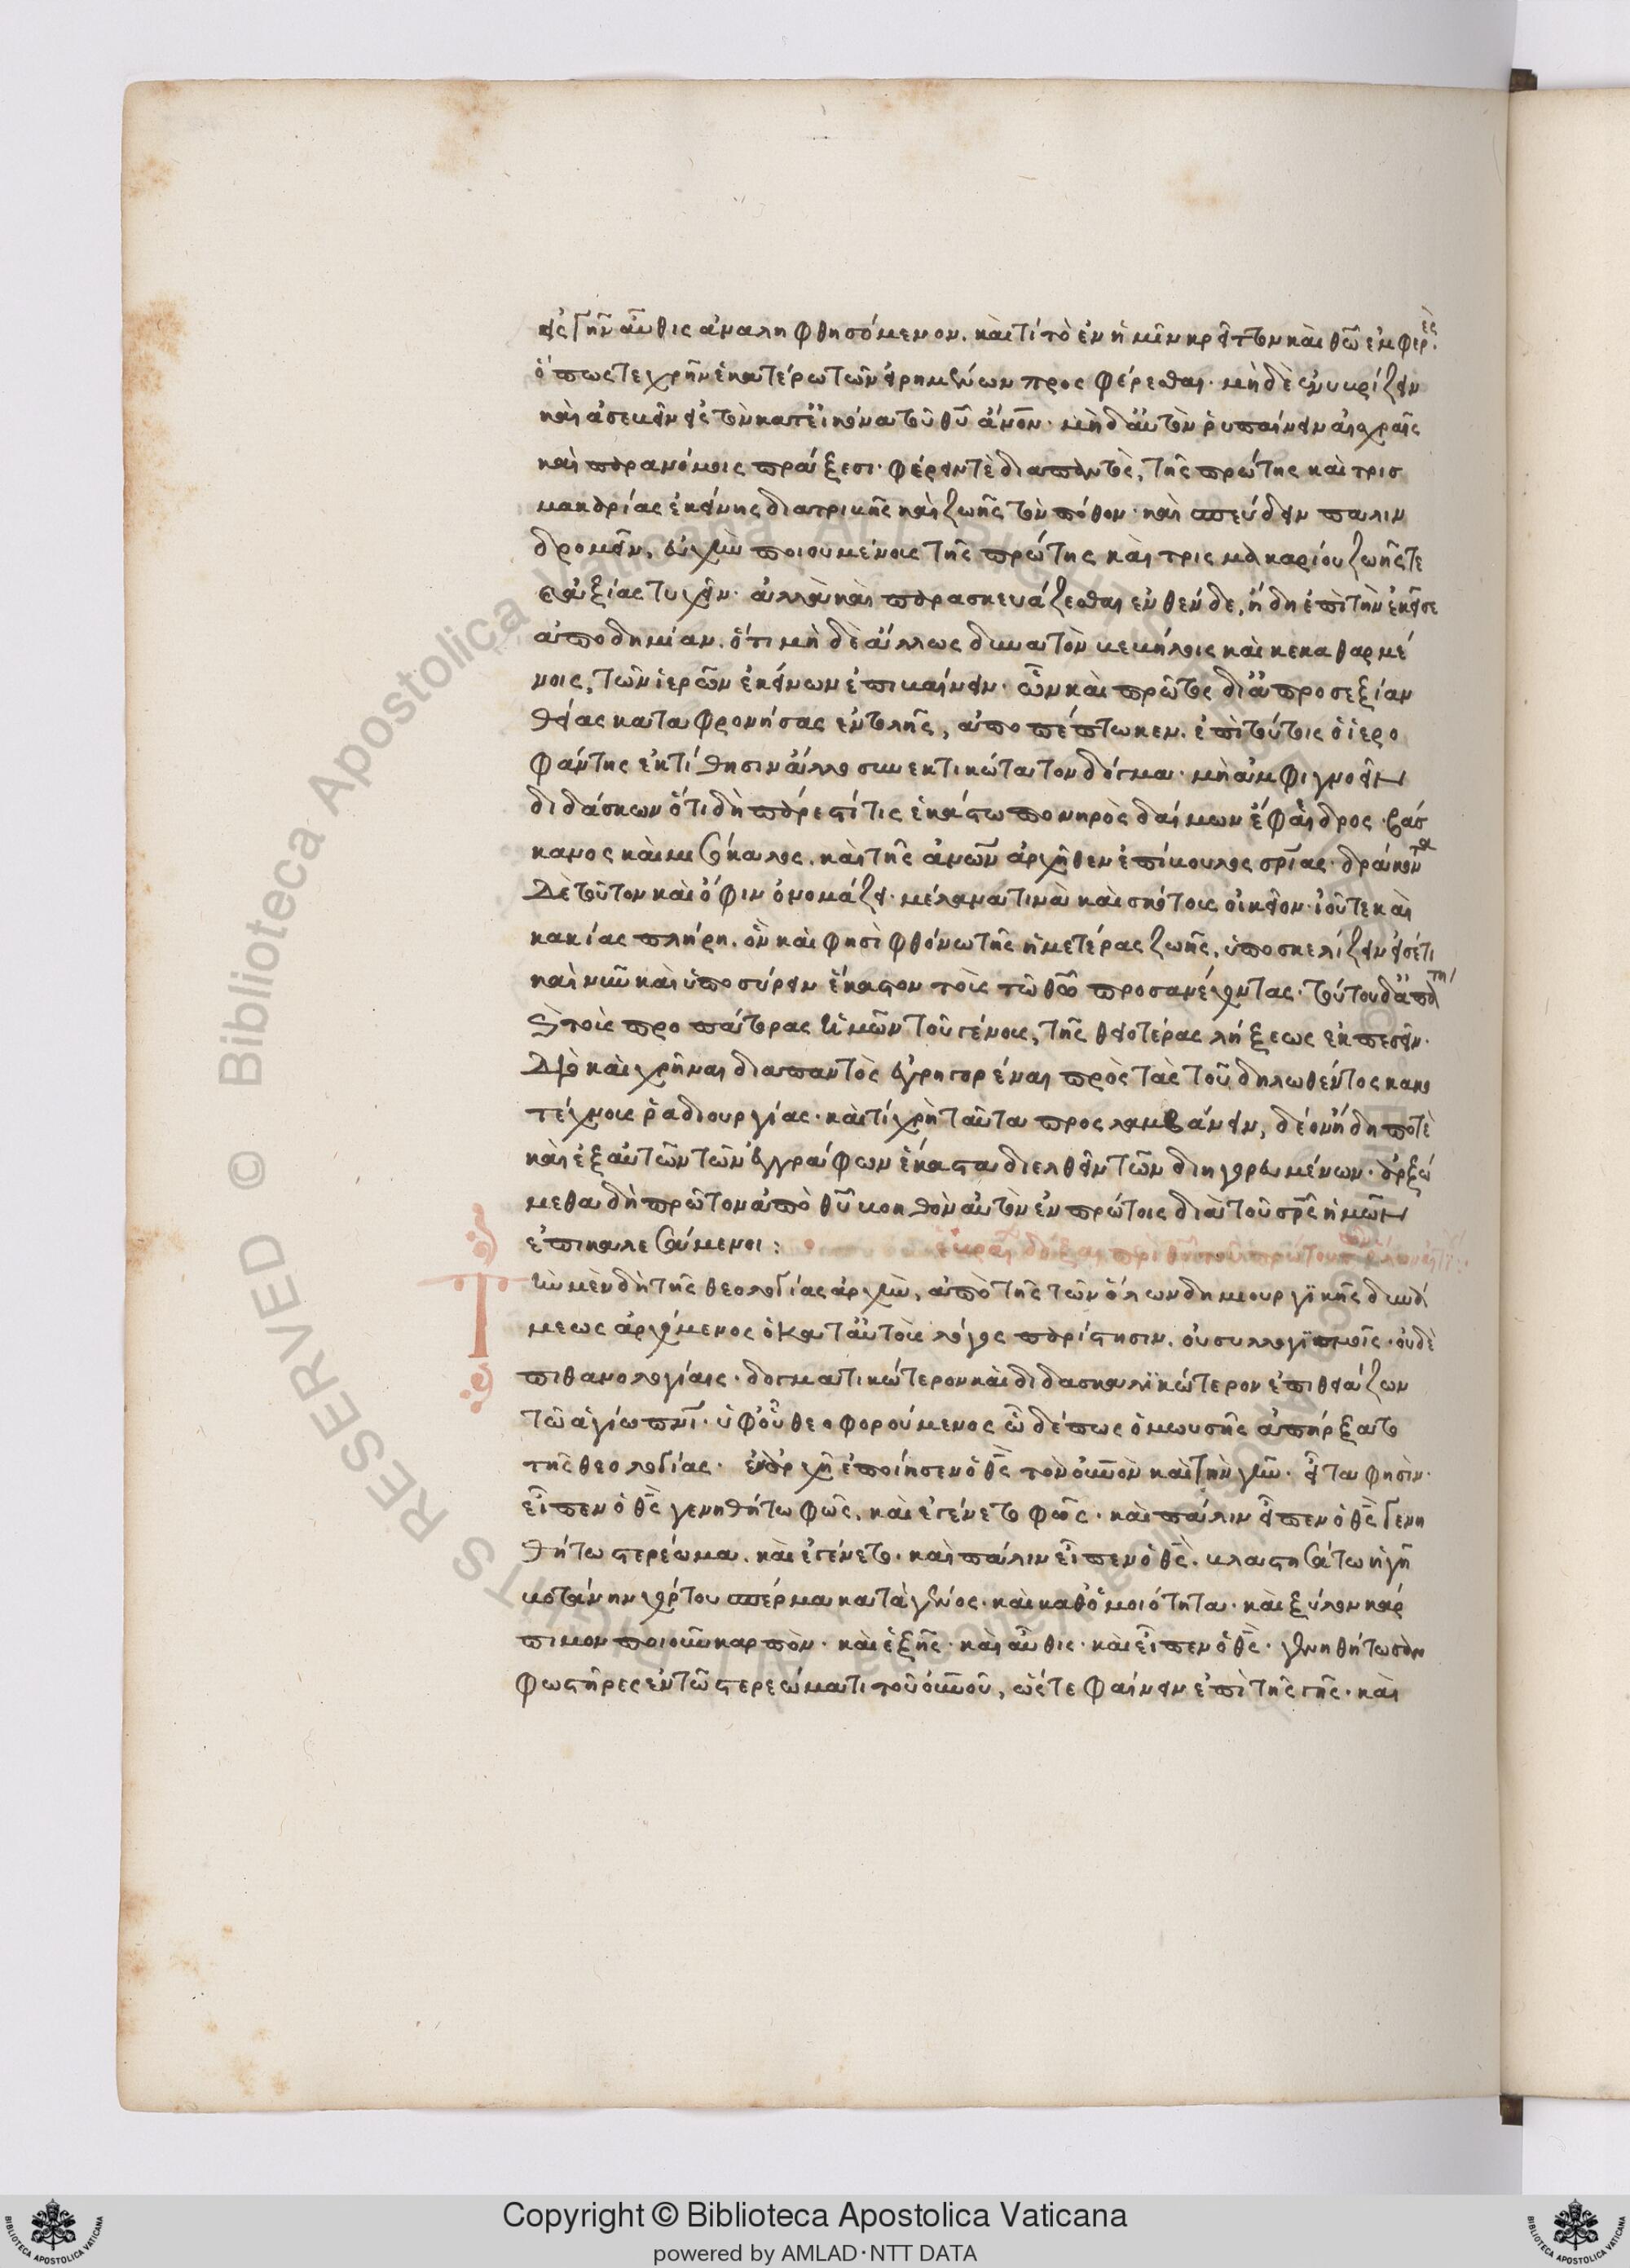 εἰς γῆν αὖθις ἀναληφθησόμενον. καὶ τί τὸ ἐν ἡμῖν κρεῖττον καὶ θῶ ἐμφερές.
ὅπως τε χρὴν ἑκατέρω τῶν εἰρημένων προσφέρεσθαι. μηδὲ ἐνυβρίζειν
καὶ ἀσεβεῖν εἰς τὸν κατ' εἰκόνα τοῦ θυ ἀνον. μηδ' αὐτὸν ῥυπαίνειν αἰσχραῖς
καὶ παρανόμοις πράξεσι. φέρειν τὲ διαπαντὸς, τῆς πρώτης καὶ τρισ
μακαρίας ἐκείνης διατριβῆς καὶ ζωῆς τὸν πόθον. καὶ σπεύδειν παλιν
δρομεῖν, εὐχὴν ποιουμένους τῆς πρώτης καὶ τρισμακαρίου ζωῆς τε
καὶ ἀξίας τυχεῖν. ἀλλὰ καὶ παρασκευάζεσθαι ἐνθένδε, ἤδη ἐπὶ τὴν ἐκεῖσε
ἀποδημίαν. ὅτι μὴ δὲ ἄλλως δυνατὸν βεβήλοις καὶ κεκαθαρμέ
νοις, τῶν ἱερῶν ἐκείνων ἐπιβαίνειν. ὧν καὶ πρῶτος δι' ἀπροσεξίαν
θείας καταφρονήσας ἐντολῆς, ἀποπέπτωκεν. ἐπὶ τούτοις ὁ ἱερο
φάντης ἐκτίθησιν ἄλλο συνεκτικώτατον δόγμα. μὴ ἀμφιγνοεῖν
διδάσκων ὅτι δὴ πάρεστί τις ἑκάστω πονηρὸς δαίμων ἔφαιδρος. βάσ
κανος καὶ μισόκαλος. καὶ τῆς ἀνων ἀρχῆθεν ἐπίβουλος σρίας. δράκοντα
δὲ τοῦτον καὶ ὄφιν ὀνομάζει. μέλανα τινὰ καὶ σκότους οἰκεῖον. ἰοῦ τε καὶ
κακίας πλήρη. ὃν καὶ φησὶ φθόνω τῆς ἡμετέρας ζωῆς, ὑποσκελίζειν εἰσέτι
καὶ νῦν καὶ ὑποσύρειν ἕκαστον τοὺς τῶ θῶ προσανέχοντας. τούτου δ' ἀπάτῃ
τοὺς προπάτορας ἡμῶν τοῦ γένους, τῆς θειοτέρας λήξεως ἐκπεσεῖν.
Διὸ καὶ χρῆναι διαπαντὸς ἐγρηγορέναι πρὸς τὰς τοῦ δηλωθέντος κακο
τέχνους ῥαδιουργίας. καὶ τί χρὴ ταῦτα προσλαμβάνειν, δέον ἤδη ποτὲ
καὶ ἐξ αὐτῶν τῶν ἐγγράφων ἕκαστα διελθεῖν τῶν διηγορευμένων. ἀρξώ
μεθα δὴ πρῶτον ἀπὸ θυ βοηθὸν αὐτὸν ἐν πρώτοις διὰ τοῦ σρς ἡμῶν
ἐπικαλεσάμενοι:
Τὴν μὲν δὴ τῆς θεολογίας ἀρχὴν, ἀπὸ τῆς τῶν ὅλων δημιουργϊκῆς δυνά
μεως ἀρχόμενος ὁ κατ' αὐτοὺς λόγος παρίστησιν. οὐ συλλογϊσμοῖς. οὐδὲ
πιθανολογίαις. δογματικώτερον καὶ διδασκαλϊκώτερον ἐπιθειάζων
τῶ ἁγίω πνι. ὑφ' οὗ θεοφορούμενος ὧδέ πως ὁ μωυσῆς ἀπήρξατο
τῆς θεολογίας. ἐν ἀρχῆ ἐποίησεν ὁ θς τὸν οὐνον καὶ τὴν γῆν. εἶτα φησὶν.
εἶπεν ὁ θς γενηθήτω φῶς. καὶ ἐγένετο φῶς. καὶ πάλιν εἶπεν ὁ θς γενη
θήτω στερέωμα. καὶ ἐγένετο. καὶ πάλιν εἶπεν ὁ θς. βλαστησάτω ἡ γῆ
βοτάνην χόρτου σπέρμα κατὰ γένος. καὶ καθ' ὁμοιότητα. καὶ ξύλον κάρ
πιμον ποιοῦν καρπὸν. καὶ ἑξῆς. καὶ αὖθις. καὶ εἶπεν ὁ θς. γενηθήτωσαν
φωστῆρες ἐν τῶ στερεώματι τοῦ οὐνου, ὥστε φαίνειν ἐπὶ τῆς γῆς. καὶ
Copyright © Biblioteca Apostolica Vaticana
powered by AMLAD·NTT DATA